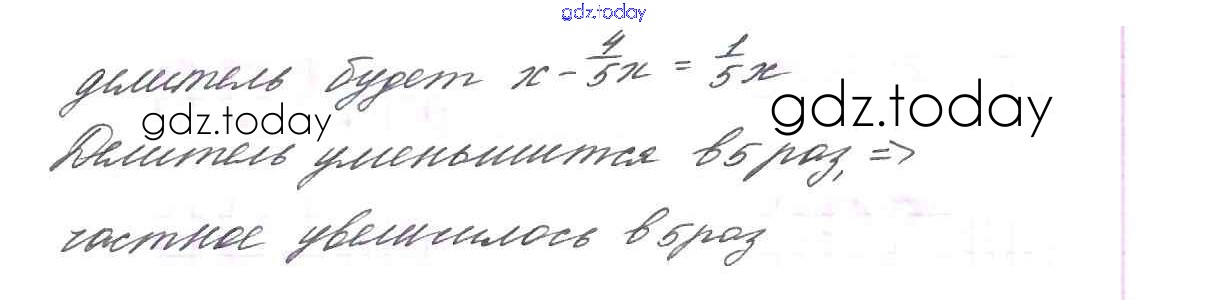 gdz.today
делитель будет x - 4/5 x = 1/5 x
gdz.today gdz.today
Делитель уменьшится в 5 раз, =>
частное увеличилось в 5 раз